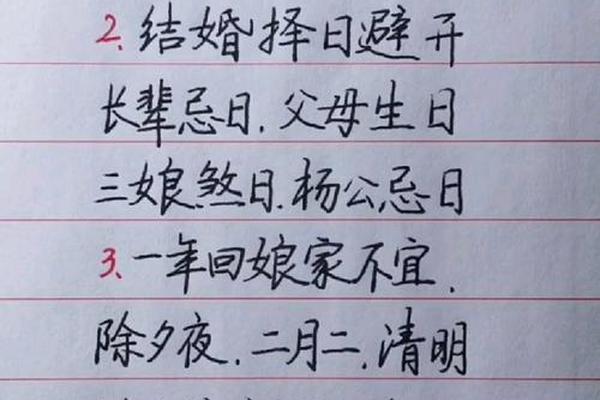 2、结婚择日避开
长辈忌日.父母生日
三娘煞日.杨公忌日
3、一年回娘家不宜.
除夕夜.二月二.清明